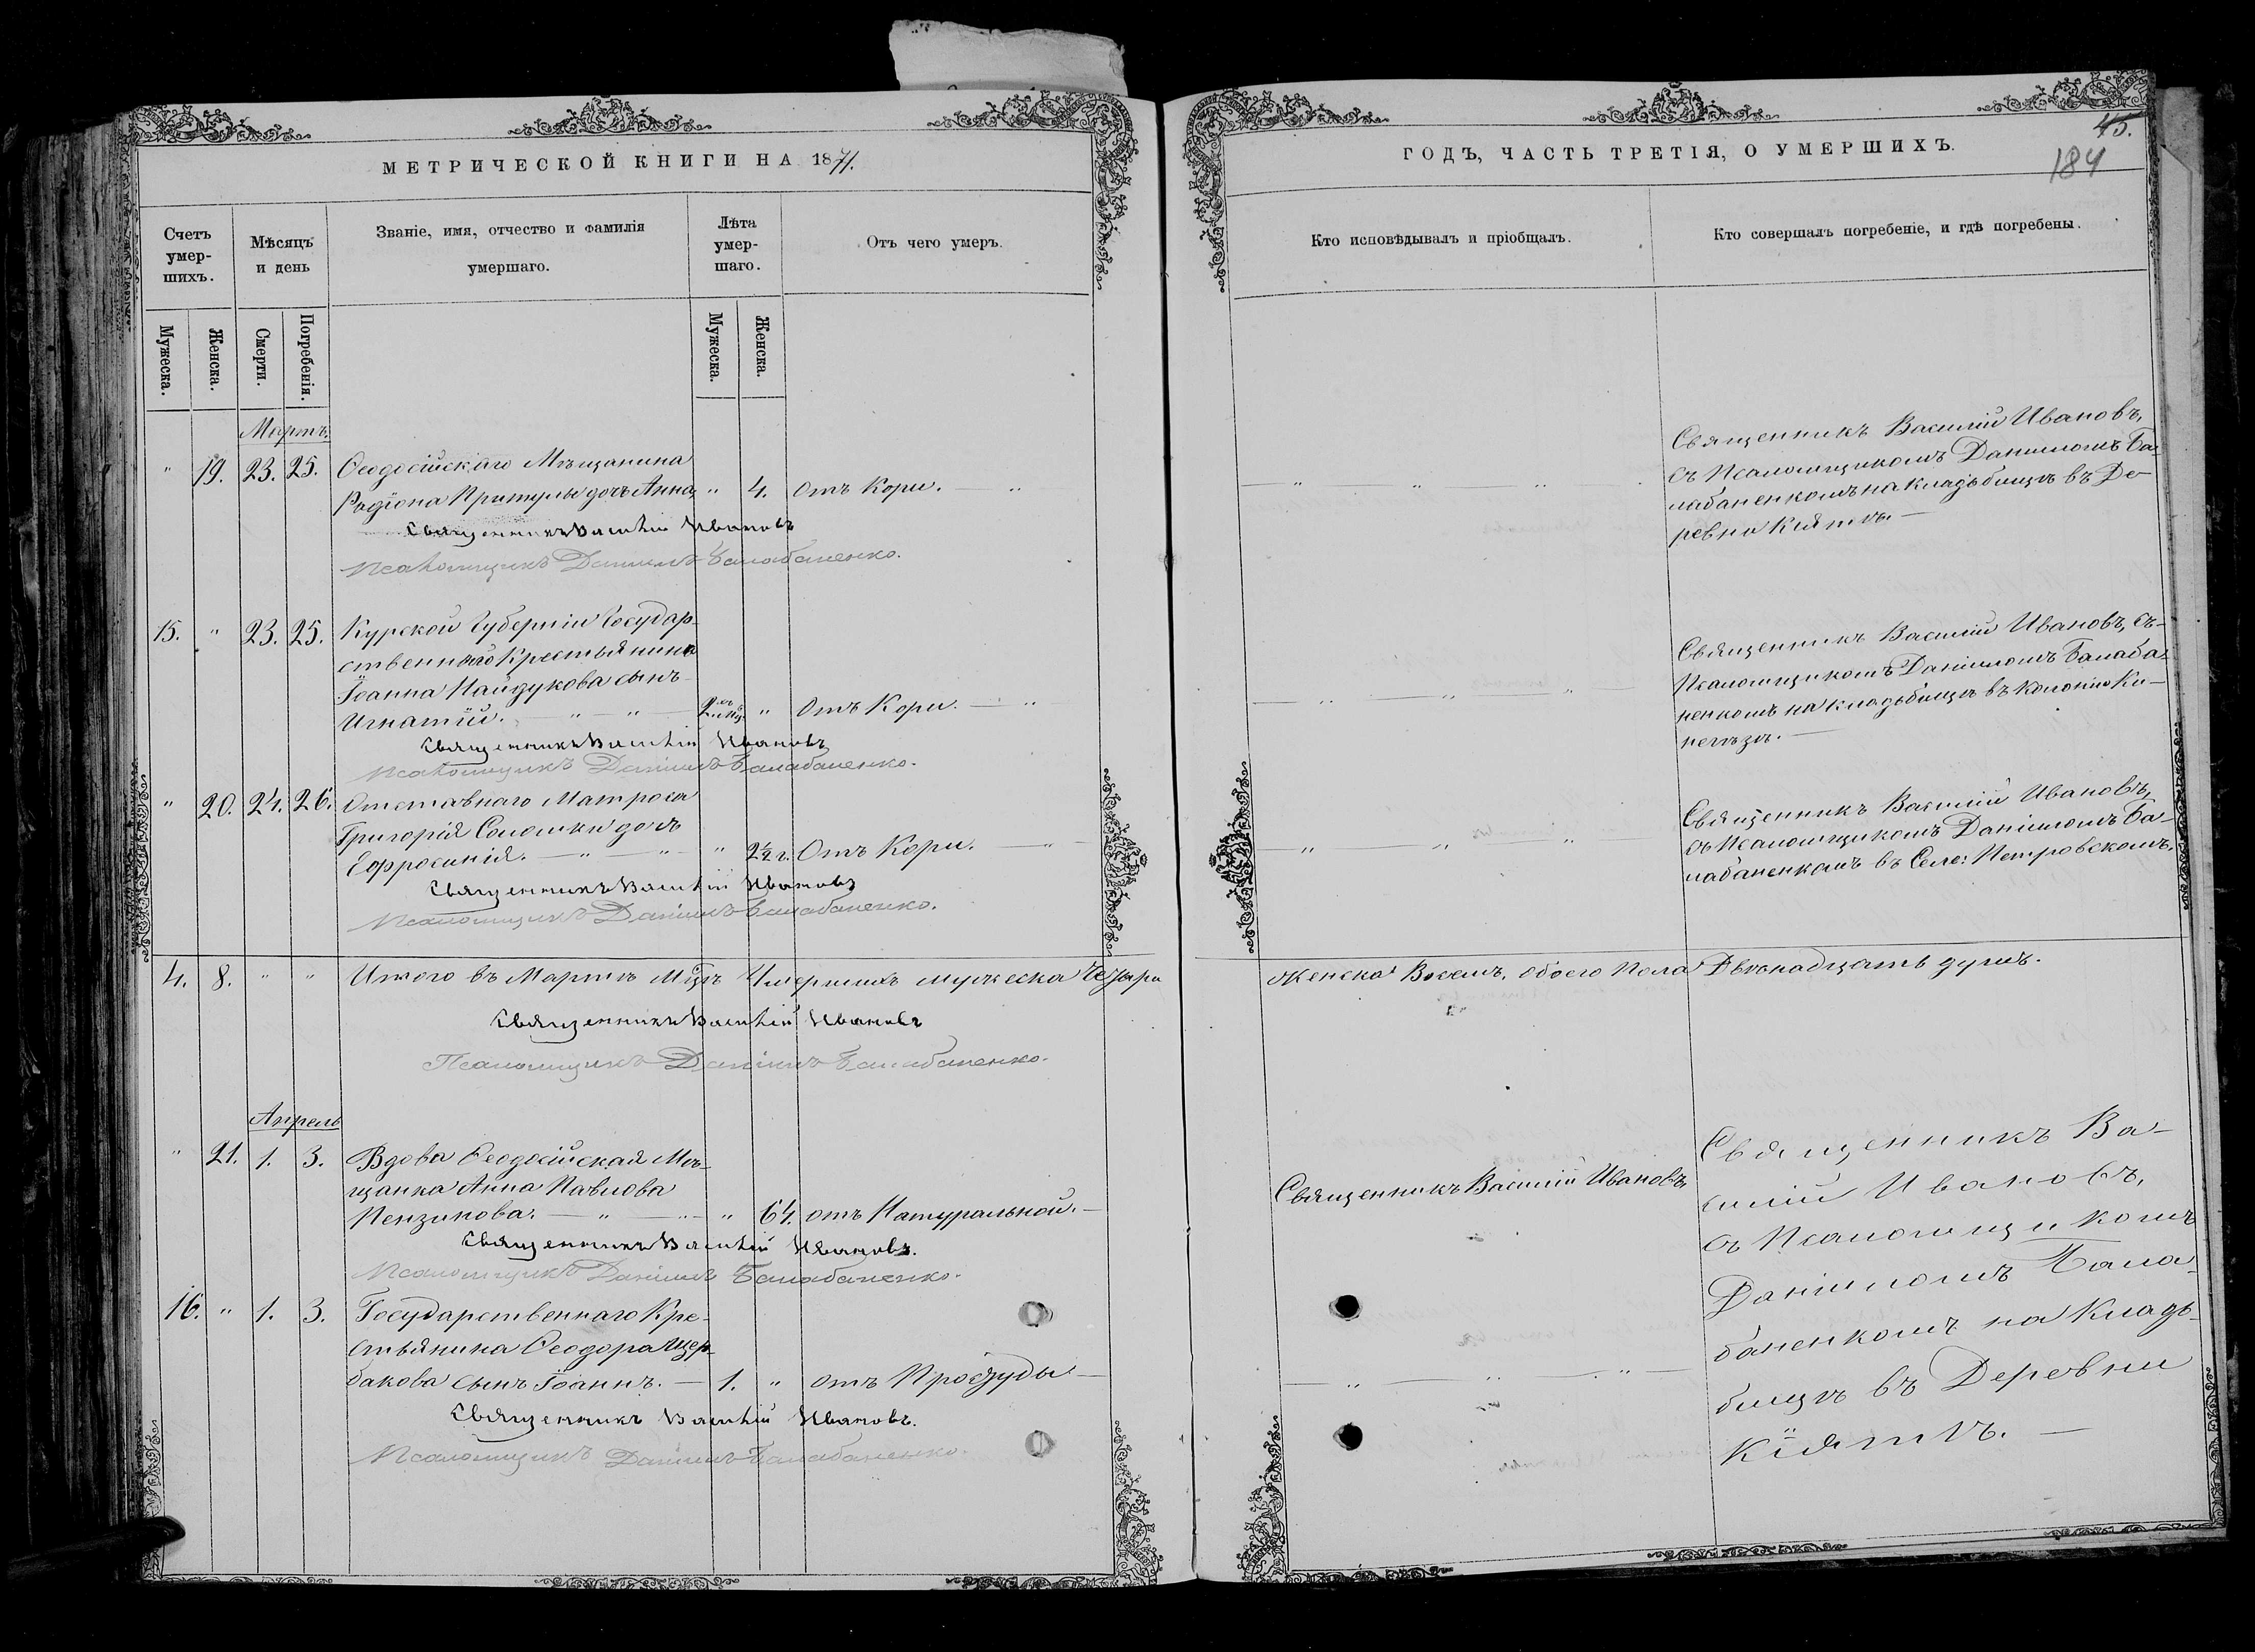 МЕТРИЧЕСКОЙ КНИГИ НА 1871.
Счетъ умер-шихъ.
Мѣсяцъ и день
Званіе, имя, отчество и фамилія умершаго.
Лѣта умер-шаго.
Отъ чего умеръ.
Мужеска.
Женска.
Смерти.
Погребенія.
Мужеска.
Женска.
Мартъ.
" 19. 23. 25. Ѳеодосійскаго Мѣщанина
Радіона Притулы дочь Анна " 4. отъ Кори. — "
Священникъ Василій Ивановъ
Псаломщикъ Даніилъ Балабаненко.
15. " 23. 25. Курской Губерніи Государ-
ственнаго Крестьянина
Іоанна Найдукова сынъ
Игнатій. — " — " — 2 " Отъ Кори. — "
Священникъ Василій Ивановъ
Псаломщикъ Даніилъ Балабаненко.
" 20. 24. 26. Отставнаго Матроса
Григорія Соломки дочь
Ефросинія. — " — " — " 2½ г. Отъ Кори. — " —
Священникъ Василій Ивановъ
Псаломщикъ Даніилъ Балабаненко.
4. 8. " " Итого въ Мартѣ Мцѣ Умершихъ мужеска Четыри
Священникъ Василій Ивановъ
Псаломщикъ Даніилъ Балабаненко.
Апрель
" 21. 1. 3. Вдова Ѳеодосійская Мѣ-
щанка Анна Павлова
Пензикова. — " — " — " 64. отъ Натуральной. —
Священникъ Василій Ивановъ.
Псаломщикъ Даніилъ Балабаненко.
16. " 1. 3. Государственнаго Кре-
стьянина Ѳеодора Щер-
бакова сынъ Іоаннъ. — 1. " отъ Простуды —
Священникъ Василій Ивановъ.
Псаломщикъ Даніилъ Балабаненко.
45.
184
ГОДЪ, ЧАСТЬ ТРЕТІЯ, О УМЕРШИХЪ.
Кто исповѣдывалъ и пріобщалъ.
Кто совершалъ погребеніе, и гдѣ погребены.
Священникъ Василій Ивановъ,
съ Псаломщикомъ Даніиломъ Ба-
лабаненкомъ на кладьбищѣ въ Де-
ревни Кіятѣ. —
Священникъ Василій Ивановъ, съ-
Псаломщикомъ Даніиломъ Балаба-
ненкомъ на кладьбищѣ въ колоніи Ки-
Священникъ Василій Ивановъ,
съ Псаломщикомъ Даніиломъ Ба-
лабаненкомъ въ Селе: Петровскомъ.
Женска Восемъ, обоего Пола Двѣнадцать душъ.
Священникъ Василій Ивановъ
Священникъ Ва-
силій Ивановъ,
съ Псаломщикомъ
Даніиломъ Бала-
баненкомъ на Кладь-
бищѣ въ Деревни
Кіятѣ. —